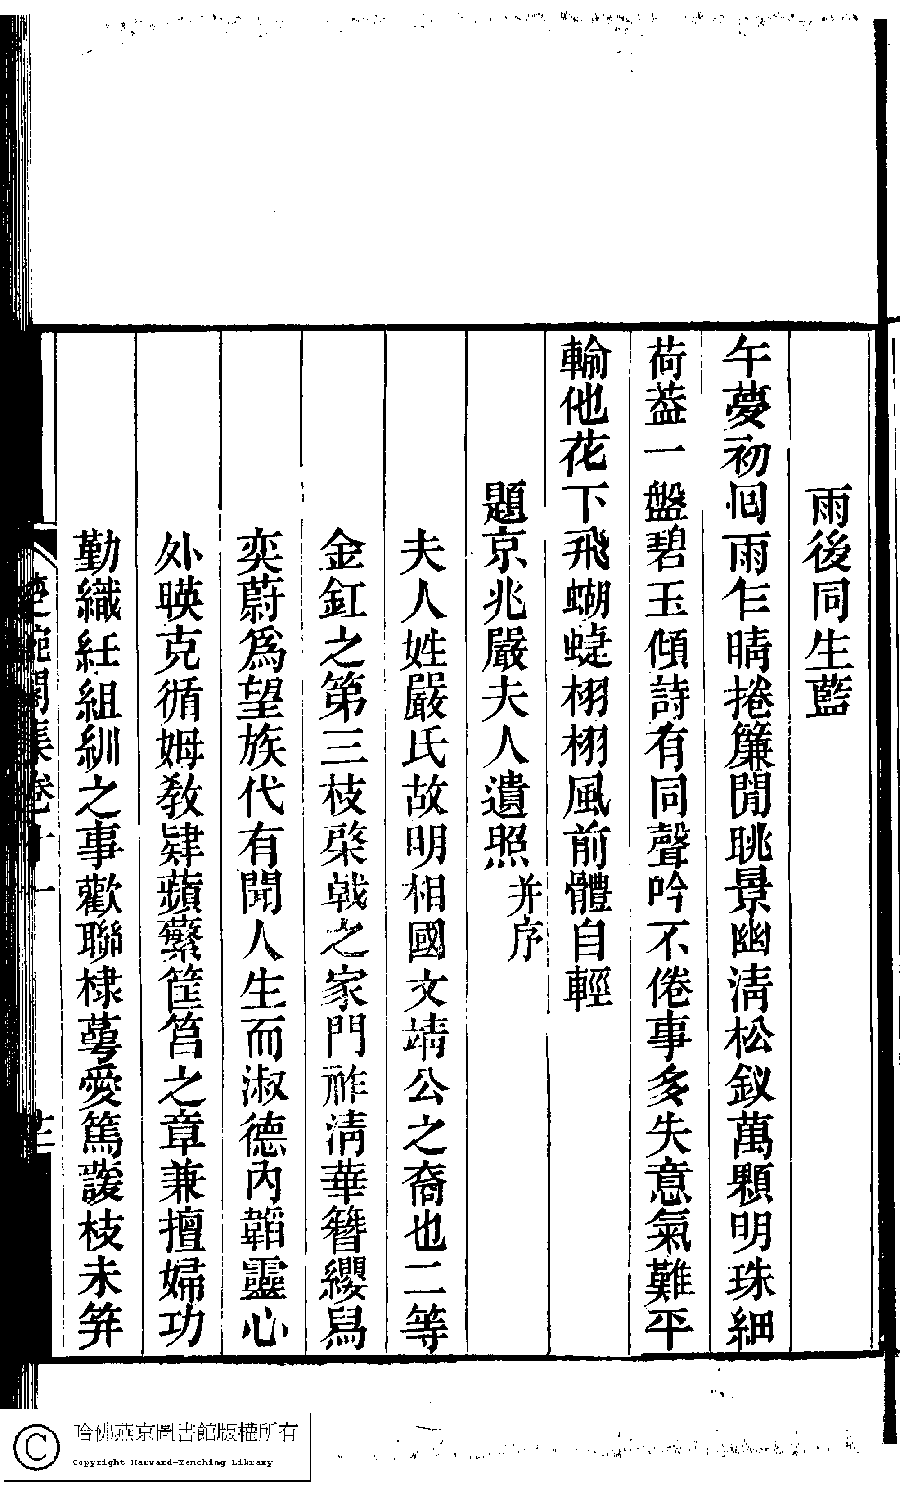 雨後同生藍
午夢初回雨乍晴捲簾閒眺景幽淸松釵萬顆明珠細
荷葢一盤碧玉傾詩有同聲吟不倦事多失意氣難平
輸他花下飛蝴蜨栩栩風前體自輕
題京兆嚴夫人遺照并序
夫人姓嚴氏故明相國文靖公之裔也二等
金釭之第三枝棨戟之家門祚淸華簪纓舄
奕蔚爲望族代有聞人生而淑德內韜靈心
外暎克循姆敎肄蘋蘩筐筥之章兼擅婦功
勤織紝組紃之事歡聯棣萼愛篤諼枝未笄
閨集卷十一
哈佛燕京圖書館版權所有
Copyright Harvard-Yenching Library